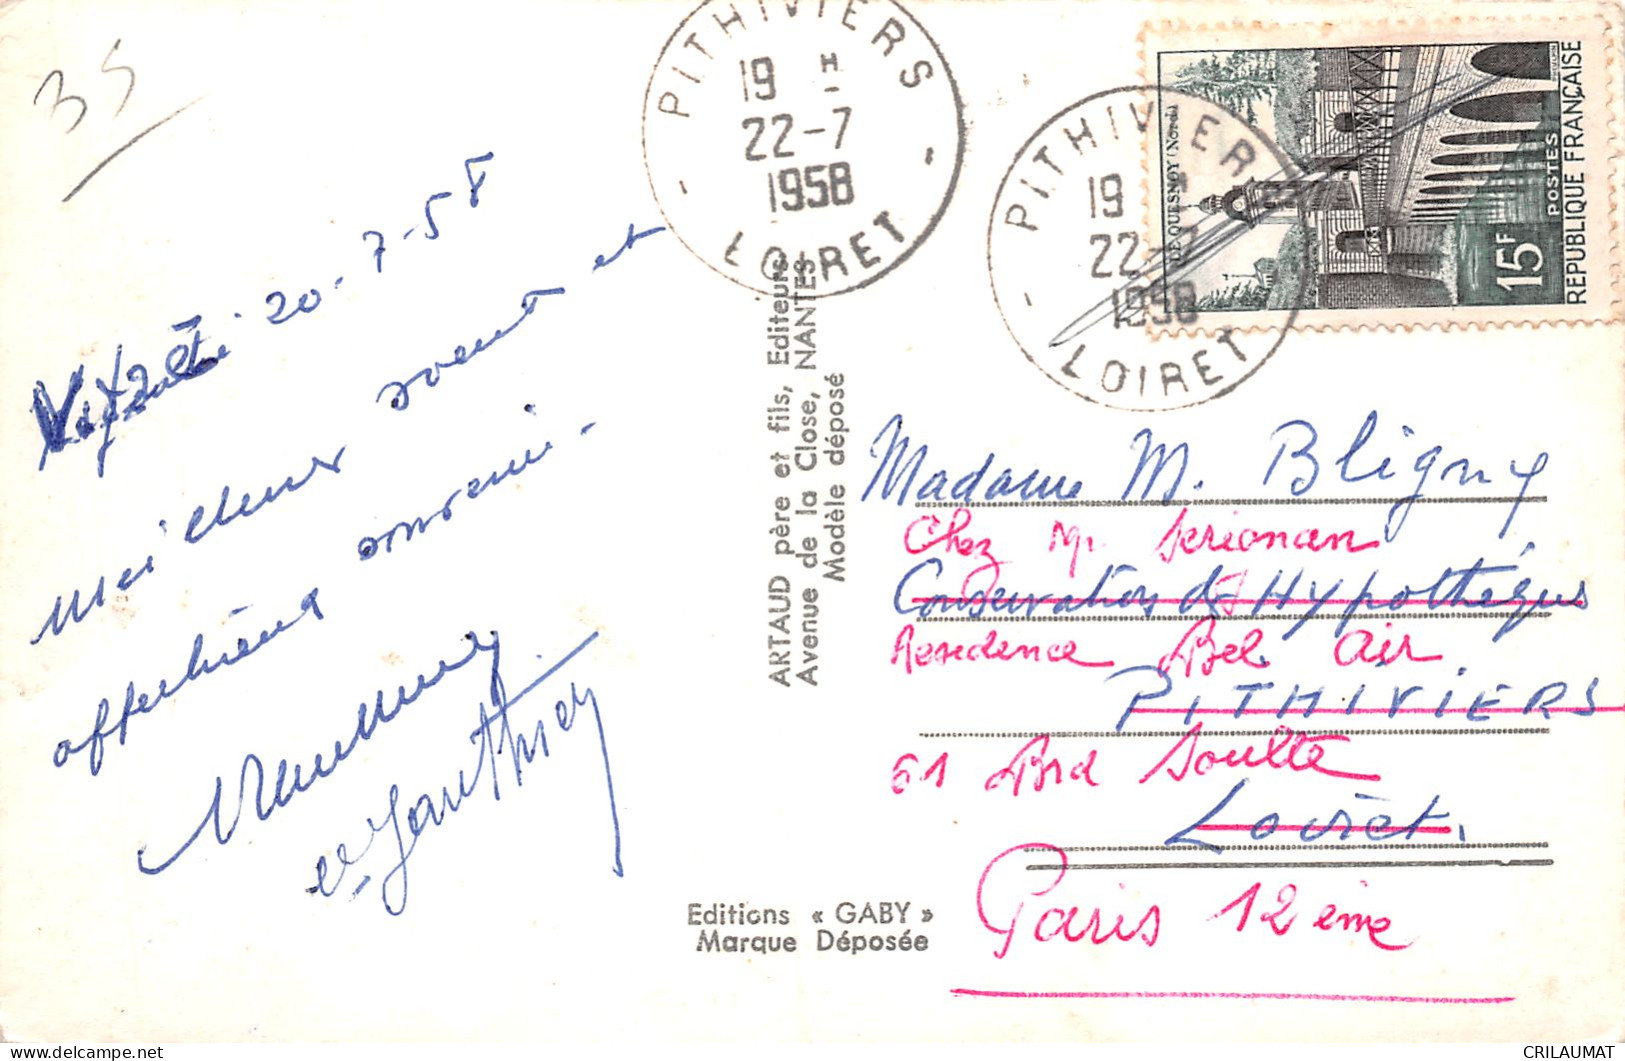 35
20-7-58
meilleur souvenir et
affectueux souvenir.
et Gauthier
PITHIVIERS
19 H
22-7
1958
LOIRET
PITHIVIERS
19 H
22-7
1958
LOIRET
LE QUESNOY (Nord)
15F
POSTES
REPUBLIQUE FRANÇAISE
ARTAUD père et fils, Editeurs
Avenue de la Close, NANTES
Modèle déposé
Madame M. Bligny
Chez Mr Serignan
Conservation des Hypothèques
Residence Bel Air
PITHIVIERS
61 Bvd Soulte
Loiret.
Paris 12 eme
Editions « GABY »
Marque Déposée
CRILAUMAT